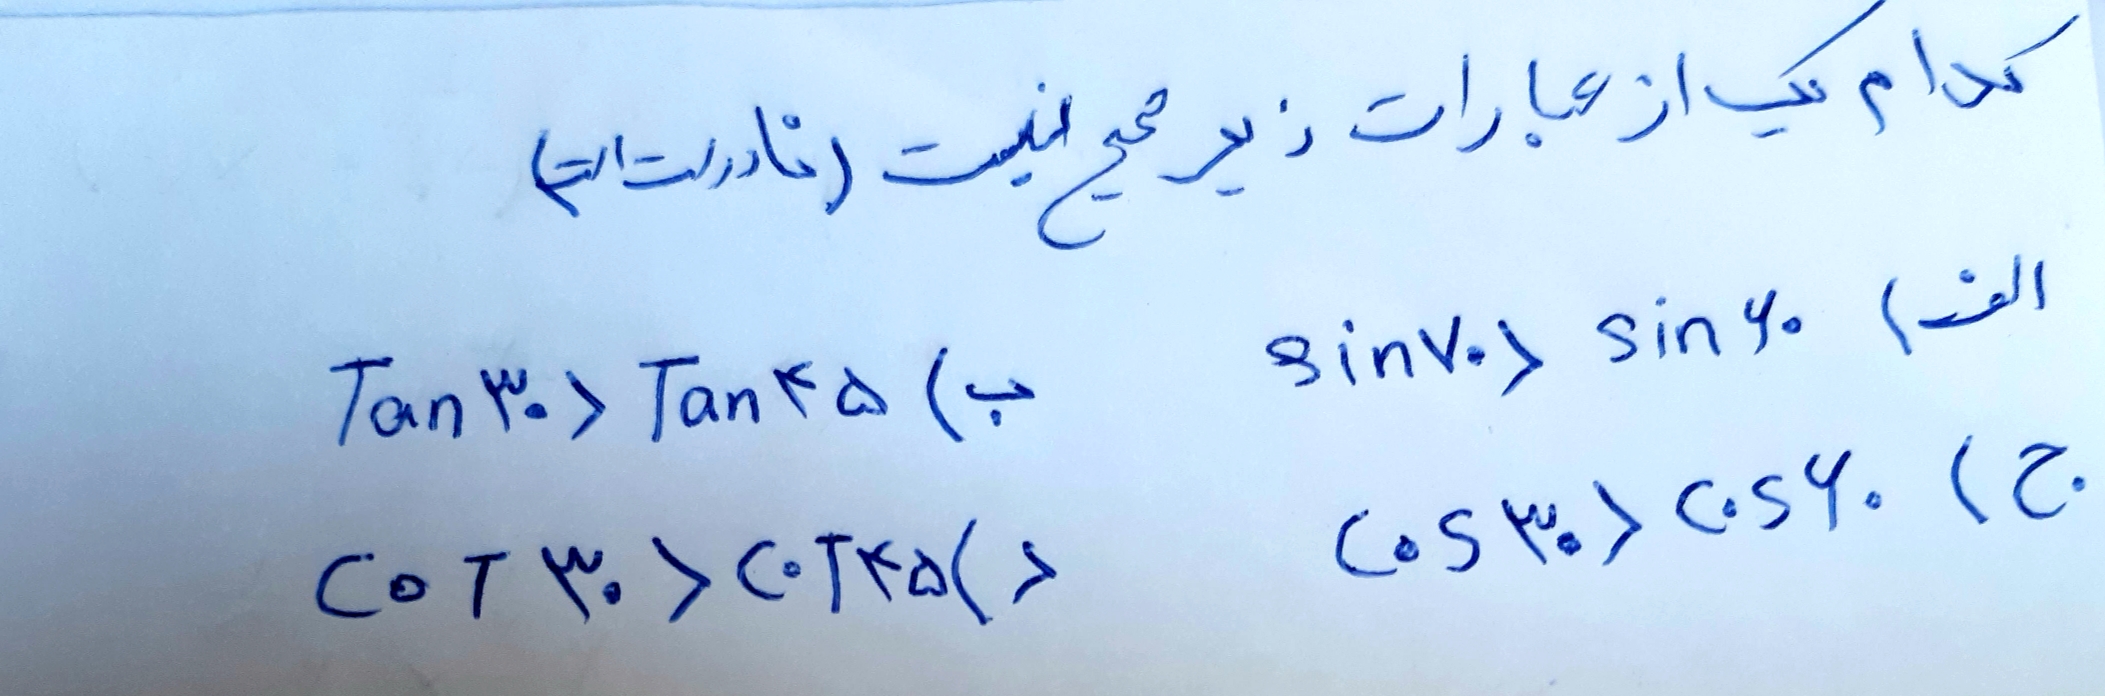 کدام یک از عبارات زیر صحیح نیست (نادرست است)
الف) sin۷۰ > sin۶۰ ب) Tan۳۰ > Tan۴۵
ج) Cos۳۰ > Cos۶۰ د) CoT۳۰ > CoT۴۵